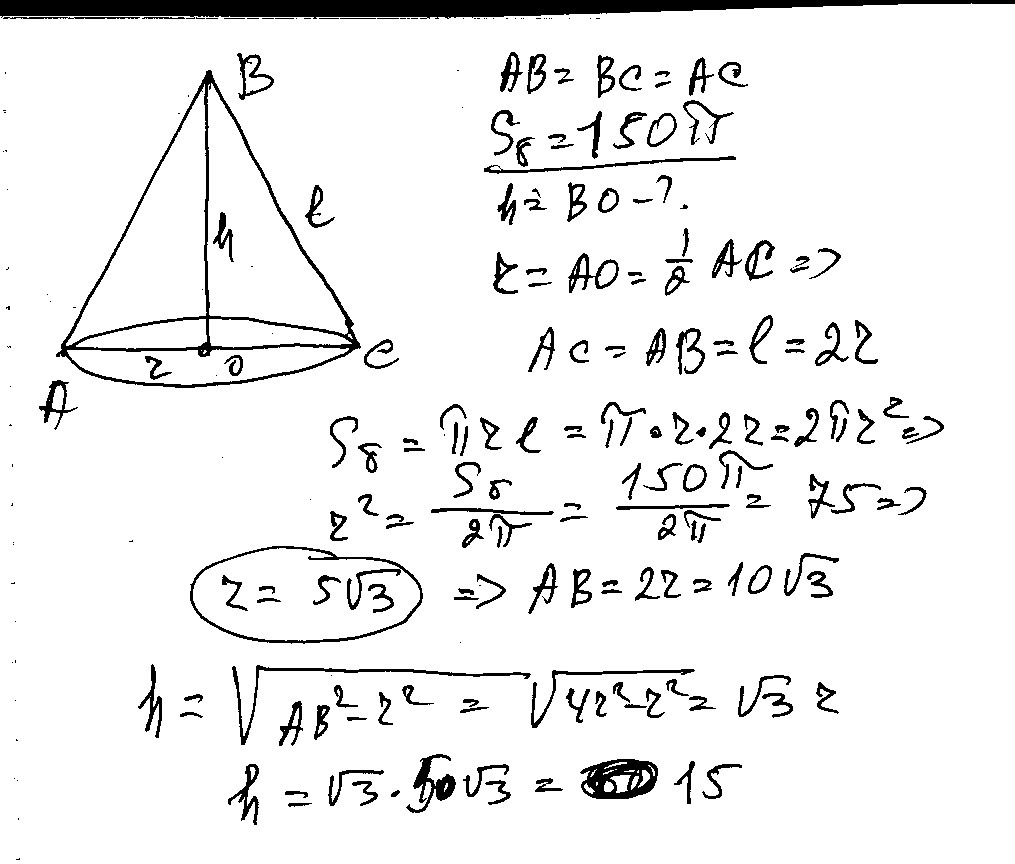 B
AB = BC = AC
Sб = 150π
h = BO - ?
h
l
r = AO = 1/2 AC =>
r
O
C
A
AC = AB = l = 2r
Sб = πrl = π·r·2r = 2πr² =>
r² = Sб/2π = 150π/2π = 75 =>
r = 5√3 => AB = 2r = 10√3
h = √(AB² - r²) = √(4r² - r²) = √3 r
h = √3 · 5√3 = 15